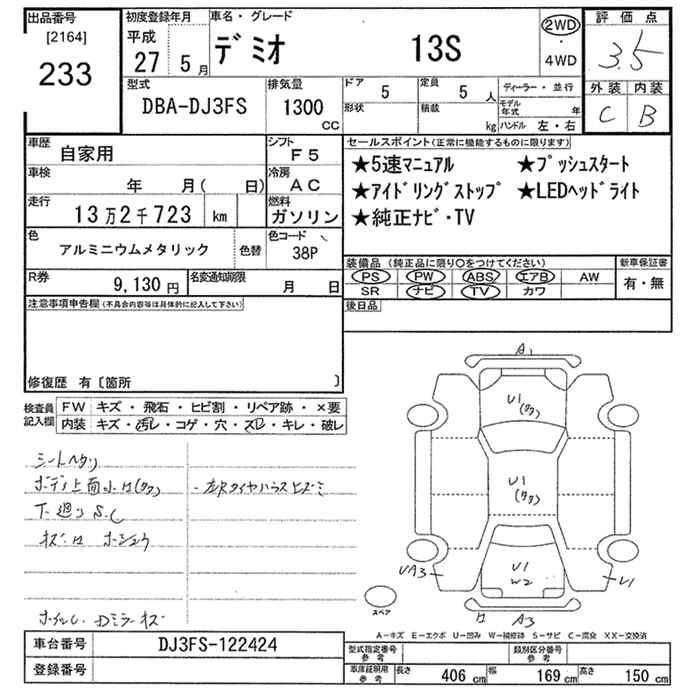 出品番号
[2164]
233
初度登録年月
平成
27 5月
車名・グレード
デミオ 13S
2WD
・
4WD
評価点
3.5
外装 内装
C B
型式
DBA-DJ3FS
排気量
1300
CC
ドア 5
形状
定員 5 人
積載 kg
ディーラー・並行
モデル年式 年
ハンドル 左・右
車歴
自家用
シフト
F5
車検
年 月( 日)
冷房
AC
走行
13万2千723 km
燃料
ガソリン
色
アルミニウムメタリック
色替
色コード
38P
R券
9,130 円
名変通知期限
月 日
セールスポイント(正常に機能するものに限ります)
★5速マニュアル ★プッシュスタート
★アイドリングストップ ★LEDヘッドライト
★純正ナビ・TV
装備品 (純正品に限り○をつけてください)
PS PW ABS エアB AW
SR ナビ TV カワ
新車保証書
有・無
後日品
注意事項申告欄(不具合内容等は具体的に記入して下さい)
修復歴 有〔箇所 〕
検査員
記入欄
FW キズ・飛石・ヒビ割・リペア跡・×要
内装 キズ・汚レ・コゲ・穴・スレ・キレ・破レ
シートヘタリ
ボディ上面小凹(タタ)
下廻りS.C
キズ・凹 ホシュウ
ホイルC Dミラーキズ
A1
U1
(タタ)
U1
(タタ)
U1
W2
UA3
U1
凹 A3
スペア
A-キズ E-エクボ U-凹み W-補修跡 S-サビ C-腐食 XX-交換済
車台番号 DJ3FS-122424
登録番号
型式指定番号
参考
類別区分番号
参考
車庫証明用
参考
長さ 406 cm 幅 169 cm 高さ 150 cm